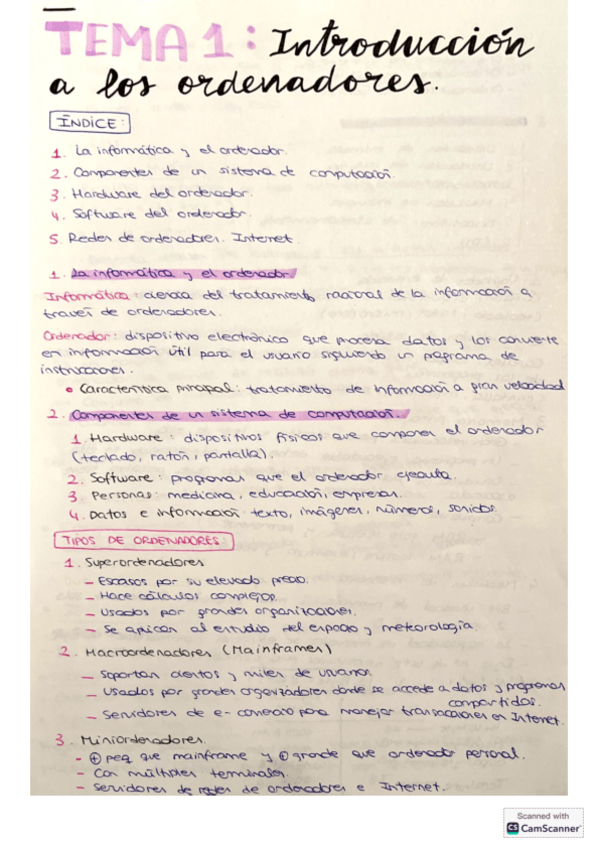 TEMA 1: Introducción
a los ordenadores.
ÍNDICE:
1. La informática y el ordenador.
2. Componentes de un sistema de computación.
3. Hardware del ordenador.
4. Software del ordenador.
5. Redes de ordenadores. Internet.
1. La informática y el ordenador
Informática: ciencia del tratamiento racional de la información a
través de ordenadores.
Ordenador: dispositivo electrónico que procesa datos y los convierte
en información útil para el usuario siguiendo un programa de
instrucciones.
• Característica principal: tratamiento de información a gran velocidad
2. Componentes de un sistema de computación.
1. Hardware: dispositivos físicos que componen el ordenador
(teclado, ratón, pantalla).
2. Software: programas que el ordenador ejecuta.
3. Personas: medicina, educación, empresas.
4. Datos e información: texto, imágenes, números, sonidos.
TIPOS DE ORDENADORES:
1. Superordenadores
- Escasos por su elevado precio.
- Hace cálculos complejos.
- Usados por grandes organizaciones.
- Se aplican al estudio del espacio y meteorología.
2. Macroordenadores (Mainframes)
- Soportan cientos y miles de usuarios.
- Usados por grandes organizadores donde se accede a datos y programas
compartidos.
- Servidores de e-comercio para manejar transacciones en Internet.
3. Miniordenadores.
- ⊕ peq que mainframe y ⊕ grande que ordenador personal.
- Con múltiples terminales.
- Servidores de redes de ordenadores e Internet.
Scanned with
CS CamScanner